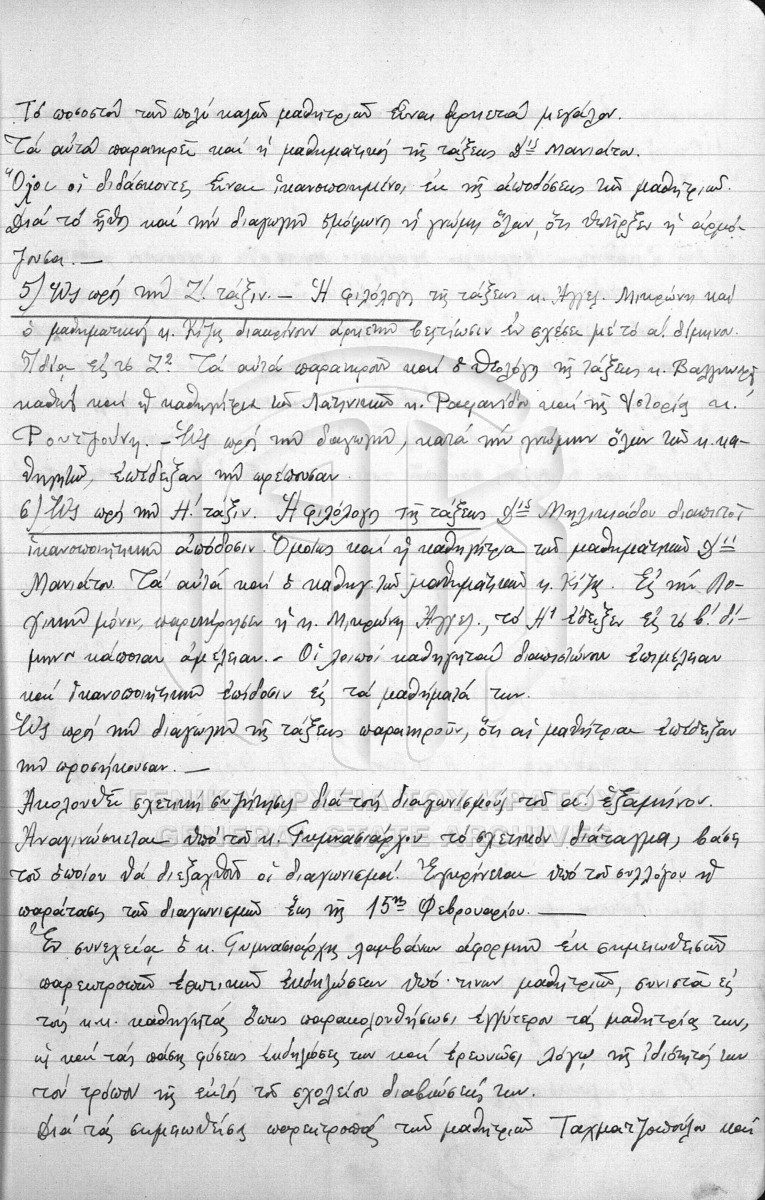 Τό ποσοστόν τῶν πολύ καλῶν μαθητριῶν εἶναι ἀρκετά μεγάλον.
Τά αὐτά παρατηρεῖ καί ἡ μαθηματικός τῆς τάξεως Δἰς Μανιάτου.
Ὅλοι οἱ διδάσκοντες εἶναι ἱκανοποιημένοι ἐκ τῆς ἀποδόσεως τῶν μαθητριῶν.
Διά τό ἦθος καί τήν διαγωγήν σύμφωνος ἡ γνώμη ὅλων, ὅτι ὑπῆρξεν ἡ ἁρμό-
ζουσα. —
5) Ὡς πρός τήν Ζ΄. τάξιν. — Ἡ φιλόλογος τῆς τάξεως κ. Ἀγγελ. Μικρώνη καί
ὁ μαθηματικός κ. Κίζης διακρίνουν ἀρκετήν βελτίωσιν ἐν σχέσει μέ τό α΄. δίμηνον.
Ἰδίᾳ εἰς τό Ζ² Τά αὐτά παρατηροῦν καί ὁ θεολόγος τῆς τάξεως κ.
καθώς καί ἡ καθηγήτρια τῶν Λατινικῶν κ. Ραφανίδου καί τῆς Ἱστορίας κ.
Ρουτζούνη. — Ὡς πρός τήν διαγωγήν, κατά τήν γνώμην ὅλων τῶν κ. κα-
θηγητῶν, ἐπέδειξαν τήν πρέπουσαν.
6) Ὡς πρός τήν Η΄. τάξιν. Ἡ φιλόλογος τῆς τάξεως Δἰς Μηλικιάδου διαπιστοῖ
ἱκανοποιητικήν ἀπόδοσιν. Ὁμοίως καί ἡ καθηγήτρια τῶν μαθηματικῶν Δἰς
Μανιάτου. Τά αὐτά καί ὁ καθηγ. τῶν μαθηματικῶν κ. Κίζης. Εἰς τήν Λο-
γικήν μόνον, παρετήρησεν ἡ κ. Μικρώνη Ἀγγελ., τό Η¹ ἔδειξεν εἰς τό β΄. δί-
μηνον κάποιαν ἀμέλειαν. — Οἱ λοιποί καθηγηταί διαπιστώνουν ἐπιμέλειαν
καί ἱκανοποιητικήν ἐπίδοσιν εἰς τά μαθήματά των.
Ὡς πρός τήν διαγωγήν τῆς τάξεως παρατηροῦν, ὅτι αἱ μαθήτριαι ἐπέδειξαν
τήν προσήκουσαν. —
Ἀκολουθεῖ σχετική συζήτησις διά τούς διαγωνισμούς τοῦ α΄. ἑξαμήνου.
ΓΕΝΙΚΑ ΑΡΧΕΙΑ ΤΟΥ ΚΡΑΤΟΥΣ
Ἀναγινώσκεται ὑπό τοῦ κ. Γυμνασιάρχου τό σχετικόν διάταγμα, βάσει
GENERAL STATE ARCHIVES
τοῦ ὁποίου θά διεξαχθοῦν οἱ διαγωνισμοί. Ἐγκρίνεται ὑπό τοῦ συλλόγου ἡ
παράτασις τῶν διαγωνισμῶν ἕως τῆς 15ης Φεβρουαρίου. —
Ἐν συνεχείᾳ ὁ κ. Γυμνασιάρχης λαμβάνων ἀφορμήν ἐκ σημειωθεισῶν
παρεκτροπῶν ἐρωτικῶν ἐκδηλώσεων ὑπό τινων μαθητριῶν, συνιστᾶ εἰς
τούς κ.κ. καθηγητάς ὅπως παρακολουθήσωσι ἐγγύτερον τάς μαθητρίας των,
ὡς καί τάς πάσης φύσεως ἐκδηλώσεις των καί ἐρευνῶσι, λόγῳ τῆς ἰδιότητός των
τόν τρόπον τῆς ἐκτός τοῦ σχολείου διαβιώσεώς των.
Διά τάς σημειωθείσας παρεκτροπάς τῶν μαθητριῶν Ταχματζοπούλου καί